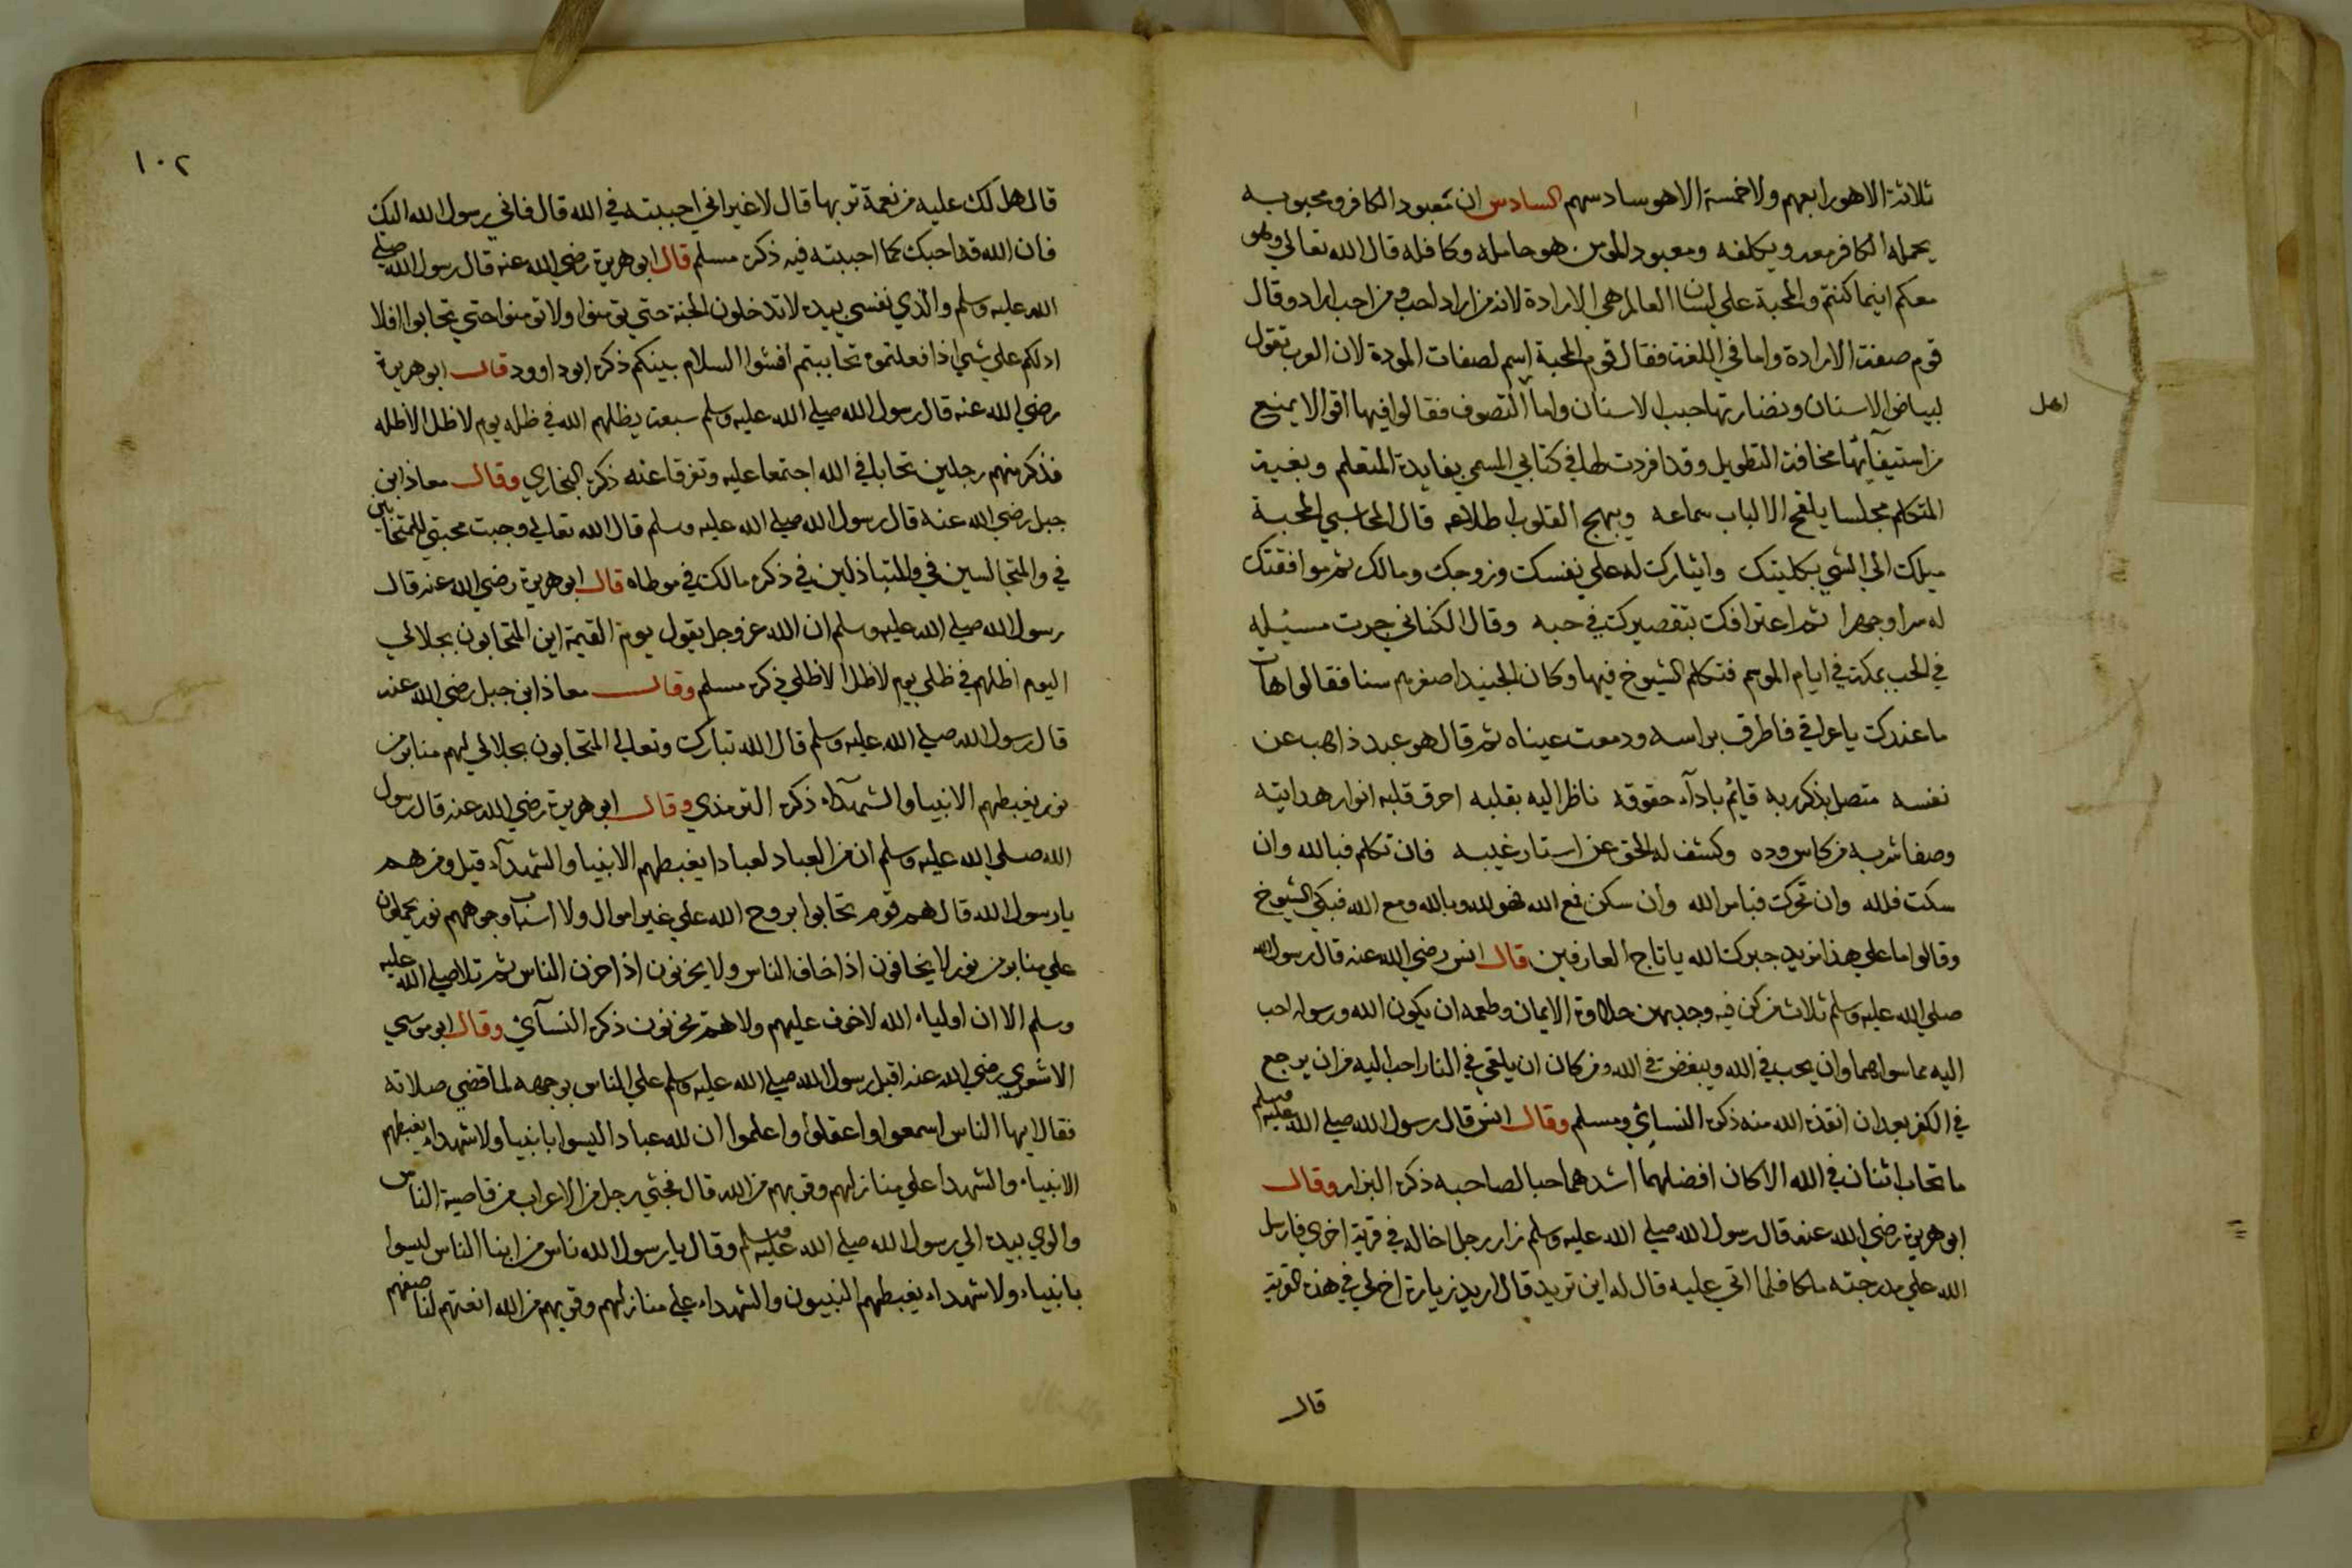 ثلاثة الا هو رابعهم ولا خمسة الا هو سادسهم السادس ان معبود الكافر ومحبوبه
يحمله الكافر معه ويكلفه ومعبود المومن هو حامله وكافله قال الله تعالي وهو
معكم اينما كنتم والمحبة علي لسان العالم هي الارادة لانه من اراد احب ومن احب اراد وقال
قوم صفته الارادة واما في اللغة فقال قوم المحبة اسم لصفات المودة لان العرب تقول
لبياض الاسنان ونضارتها حبب الاسنان واما التصوف فقالوا فيها اقوالا يمنع
اهل
من استيفآئها مخافة التطويل وقد افردت لها في كتابي المسمي بفايدة المتعلم وبغية
المتكلم مجلسا يلقح الالباب سماعه ويبهج القلوب اطلاعه قال المحاسبي المحبة
ميلك الي الشي بكليتك وايثارك له علي نفسك وزوجك ومالك ثم موافقتك
له سرا وجهرا ثم اعترافك بتقصيرك في حبه وقال الكناني جرت مسئيله
في الحب بمكة في ايام الموسم فتكلم الشيوخ فيها وكان الجنيد اصغرهم سنا فقالوا هات
ما عندك يا عراقي فاطرق براسه ودمعت عيناه ثم قال هو عبد ذاهب عن
نفسه متصل بذكر ربه قائم بادآء حقوقه ناظر اليه بقلبه احرق قلبه انوار هدايته
وصفا شربه من كاس وده وكشف له الحق عن استار غيبه فان تكلم فبالله وان
سكت فلله وان تحرك فبامر الله وان سكن فمع الله فهو لله وبالله ومع الله فبكي الشيوخ
وقالوا ما علي هذا مزيد جبرك الله يا تاج العارفين قال انس رضي الله عنه قال رسول الله
صلي الله عليه وسلم ثلاث من كن فيه وجد بهن حلاوة الايمان وطعمه ان يكون الله ورسوله احب
اليه مما سواهما وان يحب في الله ويبغض في الله ومن كان ان يلقي في النار احب اليه من ان يرجع
في الكفر بعد ان انقذه الله منه ذكره النسائي ومسلم وقال انس قال رسول الله صلي الله عليه وسلم
ما تحاب اثنان في الله الا كان افضلهما اشدهما حبا لصاحبه ذكره البزار وقال
ابو هريرة رضي الله عنه قال رسول الله صلي الله عليه وسلم زار رجل اخا له في قرية اخري فارسل
الله علي مدرجته ملكا فلما اتي عليه قال له اين تريد قال اريد زيارة اخ لي في هذه القرية
قال
١٠٢
قال هل لك عليه من نعمة تربها قال لا غير اني احببته في الله قال فاني رسول الله اليك
فان الله قد احبك كما احببته فيه ذكره مسلم قال ابو هريرة رضي الله عنه قال رسول الله صلي
الله عليه وسلم والذي نفسي بيده لا تدخلون الجنة حتي تومنوا ولا تومنوا حتي تحابوا افلا
ادلكم علي شي اذا فعلتموه تحاببتم افشوا السلام بينكم ذكره ابو داوود قال ابو هريرة
رضي الله عنه قال رسول الله صلي الله عليه وسلم سبعة يظلهم الله في ظله يوم لا ظل الا ظله
فذكر منهم رجلين تحابا في الله اجتمعا عليه وتفرقا عنه ذكره البخاري وقال معاذ ابن
جبل رضي الله عنه قال رسول الله صلي الله عليه وسلم قال الله تعالي وجبت محبتي للمتحابين
في والمتجالسين في والمتباذلين في ذكره مالك في موطاه قال ابو هريرة رضي الله عنه قال
رسول الله صلي الله عليه وسلم ان الله عز وجل يقول يوم القيمة اين المتحابون بجلالي
اليوم اظلهم في ظلي يوم لا ظل الا ظلي ذكره مسلم وقال معاذ ابن جبل رضي الله عنه
قال رسول الله صلي الله عليه وسلم قال الله تبارك وتعالي المتحابون بجلالي لهم منابر من
نور يغبطهم الانبيا والشهدآء ذكره الترمذي وقال ابو هريرة رضي الله عنه قال رسول
الله صلي الله عليه وسلم ان من العباد لعبادا يغبطهم الانبيا والشهدآء قيل ومن هم
يا رسول الله قال هم قوم تحابوا بروح الله علي غير اموال ولا انساب وجوههم نور يحملون
علي منابر من نور لا يخافون اذا خاف الناس ولا يحزنون اذا حزن الناس ثم تلا صلي الله عليه
وسلم الا ان اولياء الله لا خوف عليهم ولا هم يحزنون ذكره النسآئي وقال ابو موسي
الاشعري رضي الله عنه اقبل رسول الله صلي الله عليه وسلم علي الناس بوجهه لما قضي صلاته
فقال ايها الناس اسمعوا واعقلوا واعلموا ان لله عبادا ليسوا بانبيا ولا شهداء يغبطهم
الانبياء والشهدا علي منازلهم وقربهم من الله قال فجثي رجل من الاعراب من قاصية الناس
والوي بيده الي رسول الله صلي الله عليه وسلم وقال يا رسول الله ناس من ابنا الناس ليسوا
بانبياء ولا شهداء يغبطهم النبيون والشهداء علي منازلهم وقربهم من الله انعتهم لنا صفهم